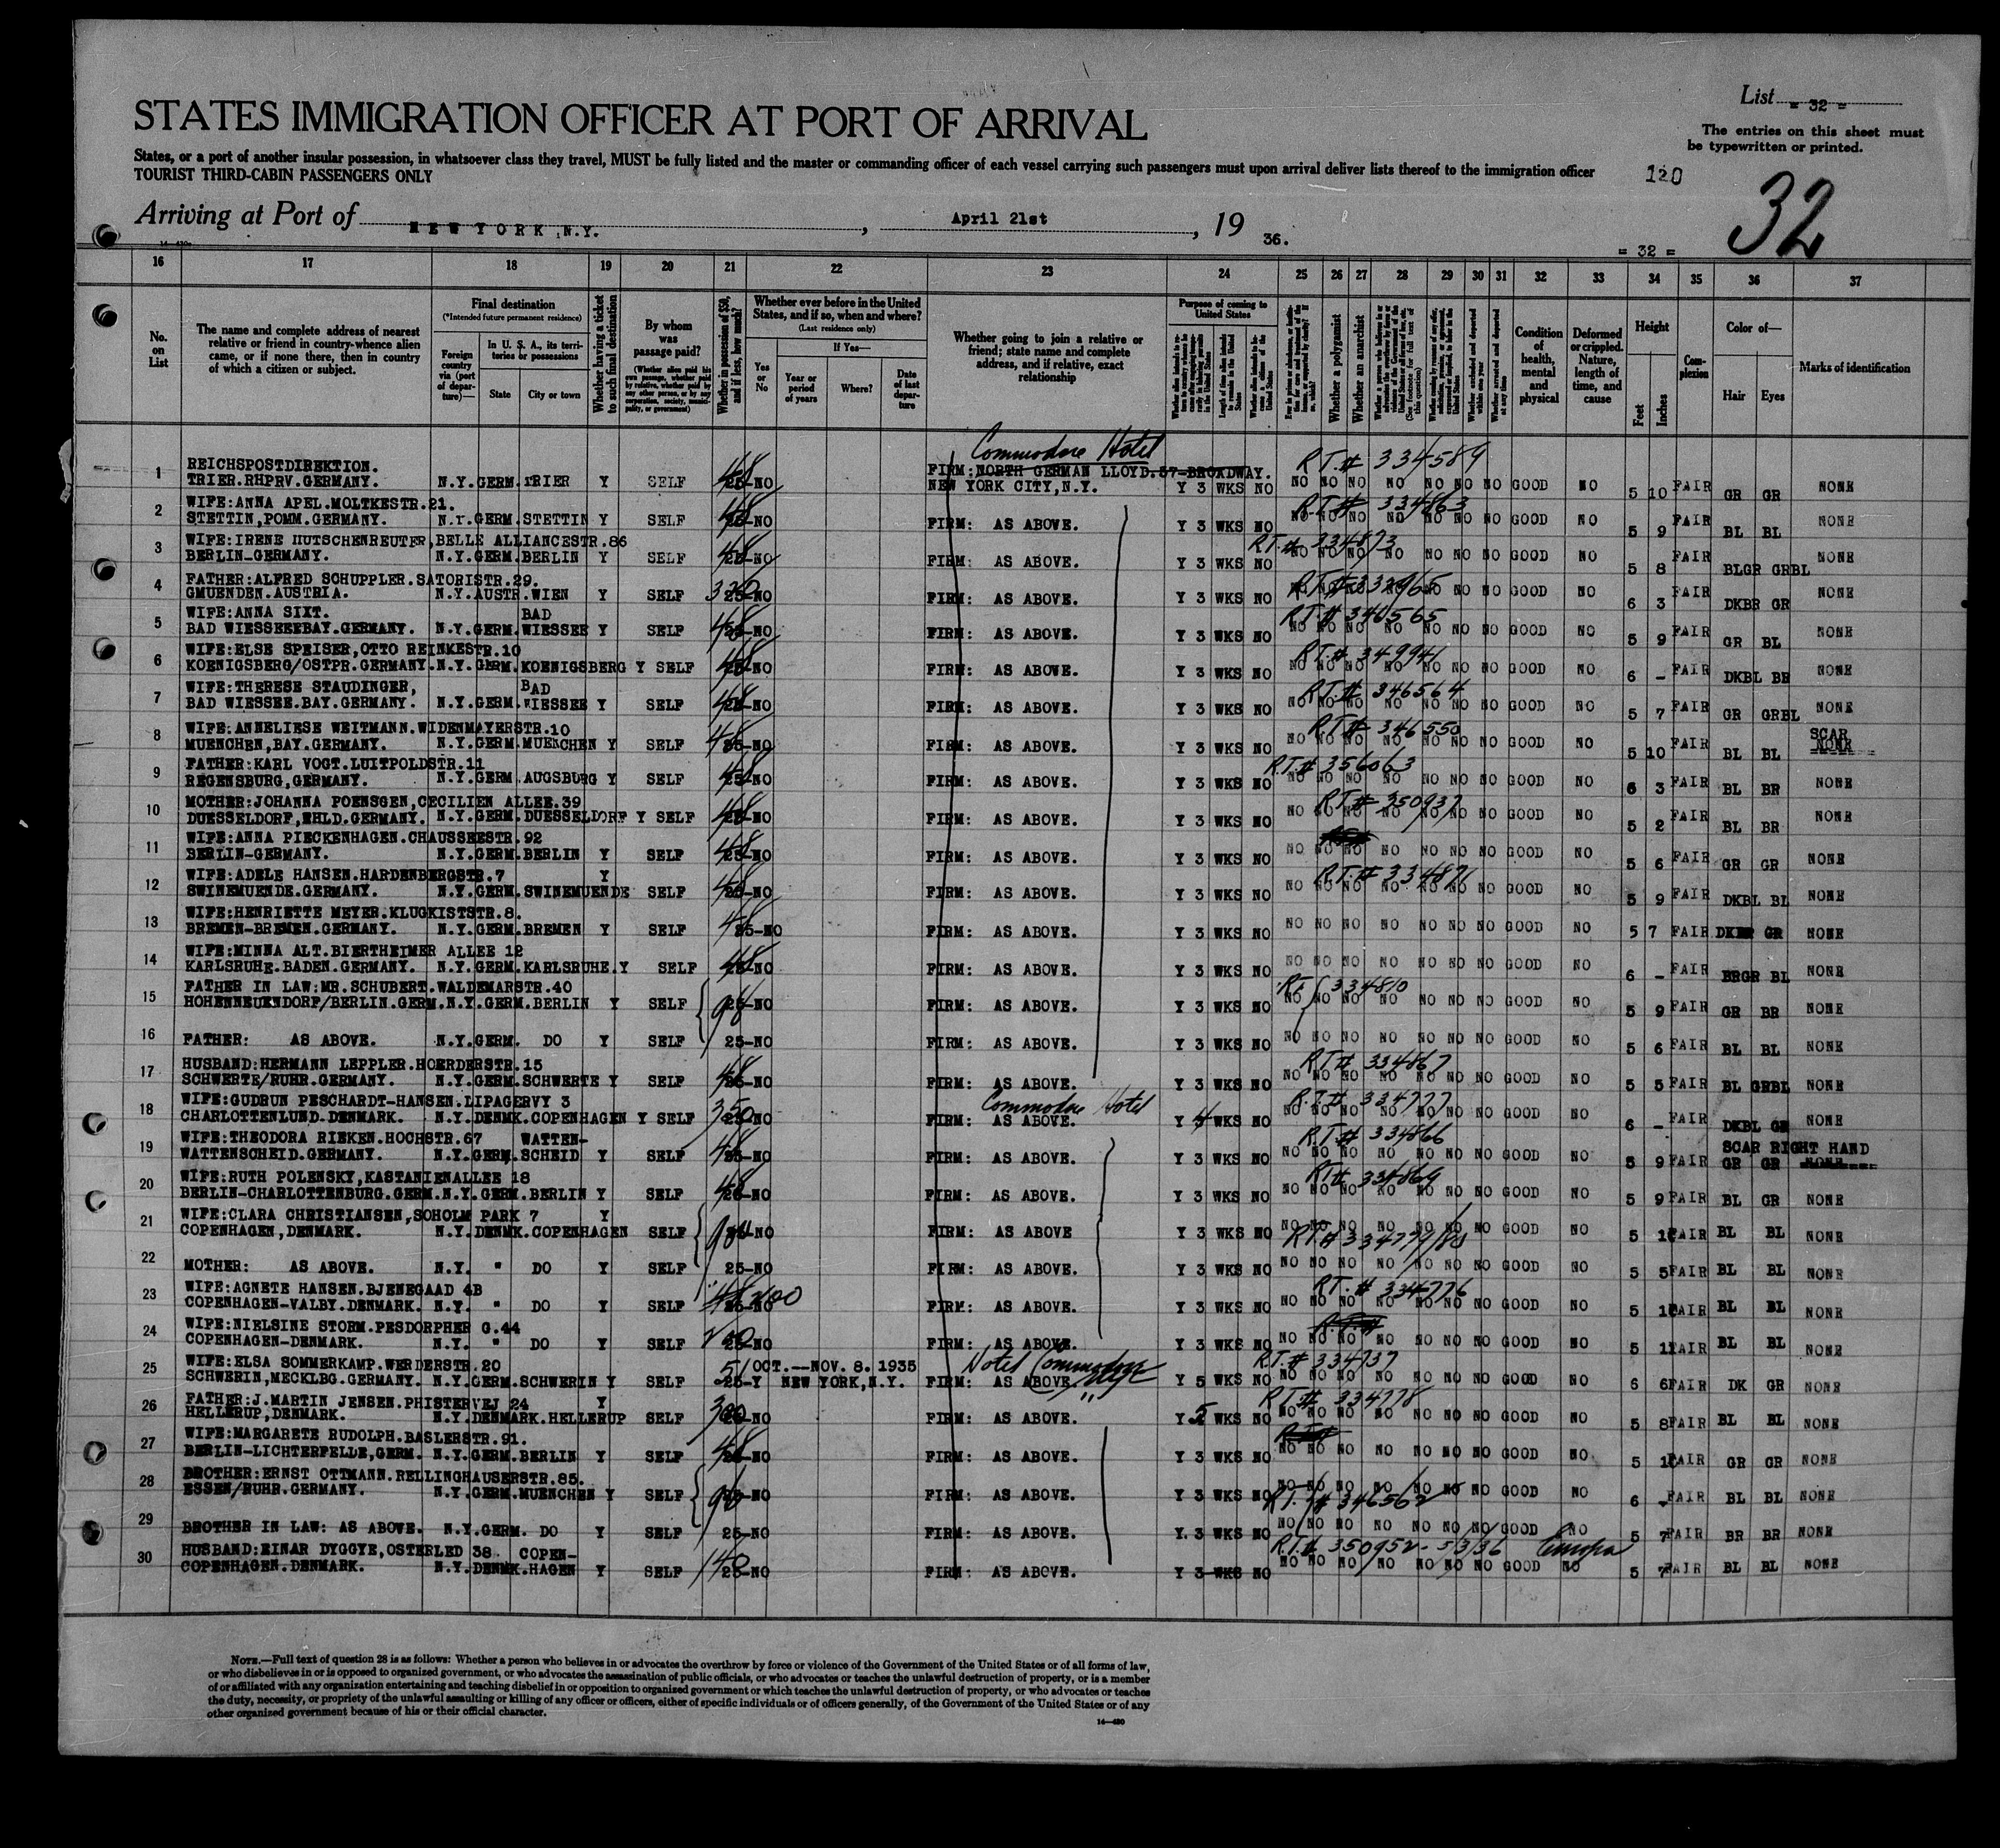 List = 32 =
STATES IMMIGRATION OFFICER AT PORT OF ARRIVAL
The entries on this sheet must
be typewritten or printed.
States, or a port of another insular possession, in whatsoever class they travel, MUST be fully listed and the master or commanding officer of each vessel carrying such passengers must upon arrival deliver lists thereof to the immigration officer
TOURIST THIRD-CABIN PASSENGERS ONLY
120
32
Arriving at Port of NEW YORK, N.Y., April 21st, 19 36.
= 32 =
16 17 18 19 20 21 22 23 24 25 26 27 28 29 30 31 32 33 34 35 36 37
No. on List
The name and complete address of nearest relative or friend in country whence alien came, or if none there, then in country of which a citizen or subject.
Final destination
(*Intended future permanent residence)
Foreign country via (port of departure)—
In U. S. A., its territories or possessions
State
City or town
Whether having a ticket to such final destination
By whom was passage paid?
(Whether alien paid his own passage, whether paid by relative, whether paid by any other person, or by any corporation, society, municipality, or government)
Whether in possession of $50, and if less, how much?
Whether ever before in the United States, and if so, when and where?
(Last residence only)
Yes or No
If Yes—
Year or period of years
Where?
Date of last departure
Whether going to join a relative or friend; state name and complete address, and if relative, exact relationship
Purpose of coming to United States
Whether a polygamist
Whether an anarchist
Condition of health, mental and physical
Deformed or crippled. Nature, length of time, and cause
Height
Feet
Inches
Complexion
Color of—
Hair
Eyes
Marks of identification
Commodore Hotel
1 REICHSPOSTDIREKTION. FIRM: NORTH GERMAN LLOYD.57-BROADWAY. R.T.# 334589
TRIER.RHPRV.GERMANY. N.Y.GERM.TRIER Y SELF 48 25-NO NEW YORK CITY,N.Y. Y 3 WKS NO NO NO NO NO NO NO NO GOOD NO 5 10 FAIR GR GR NONE
2 WIFE:ANNA APEL.MOLTKESTR.21. R.T.# 334863
STETTIN,POMM.GERMANY. N.Y.GERM.STETTIN Y SELF 48 25-NO FIRM: AS ABOVE. Y 3 WKS NO NO NO NO NO NO NO NO GOOD NO 5 9 FAIR BL BL NONE
3 WIFE:IRENE HUTSCHENREUTER,BELLE ALLIANCESTR.86 R.T.# 334873
BERLIN-GERMANY. N.Y.GERM.BERLIN Y SELF 48 25-NO FIRM: AS ABOVE. Y 3 WKS NO NO NO NO NO NO NO NO GOOD NO 5 8 FAIR BLGR GRBL NONE
4 FATHER:ALFRED SCHUPPLER.SATORISTR.29. R.T.# 332965
GMUENDEN.AUSTRIA. N.Y.AUSTR.WIEN Y SELF 25-NO FIRM: AS ABOVE. Y 3 WKS NO NO NO NO NO NO NO NO GOOD NO 6 3 FAIR DKBR GR NONE
5 WIFE:ANNA SIXT. BAD R.T.# 346565
BAD WIESSEEBAY.GERMANY. N.Y.GERM.WIESSEE Y SELF 25-NO FIRM: AS ABOVE. Y 3 WKS NO NO NO NO NO NO NO NO GOOD NO 5 9 FAIR GR BL NONE
6 WIFE:ELSE SPEISER,OTTO REINKESTR.10 R.T.# 349941
KOENIGSBERG/OSTPR.GERMANY.N.Y.GERM.KOENIGSBERG Y SELF 48 25-NO FIRM: AS ABOVE. Y 3 WKS NO NO NO NO NO NO NO NO GOOD NO 6 - FAIR DKBL BR NONE
7 WIFE:THERESE STAUDINGER, BAD R.T.# 346564
BAD WIESSEE.BAY.GERMANY. N.Y.GERM.WIESSEE Y SELF 48 25-NO FIRM: AS ABOVE. Y 3 WKS NO NO NO NO NO NO NO NO GOOD NO 5 7 FAIR GR GRBL NONE
8 WIFE:ANNELIESE WEITMANN.WIDENMAYERSTR.10 R.T.# 346550 SCAR
MUENCHEN,BAY.GERMANY. N.Y.GERM.MUENCHEN Y SELF 48 25-NO FIRM: AS ABOVE. Y 3 WKS NO NO NO NO NO NO NO NO GOOD NO 5 10 FAIR BL BL NONE
9 FATHER:KARL VOGT.LUITPOLDSTR.11 R.T.# 356063
REGENSBURG,GERMANY. N.Y.GERM.AUGSBURG Y SELF 48 25-NO FIRM: AS ABOVE. Y 3 WKS NO NO NO NO NO NO NO NO GOOD NO 6 3 FAIR BL BR NONE
10 MOTHER:JOHANNA POENSGEN,CECILIEN ALLEE.39 R.T.# 350937
DUESSELDORF,RHLD.GERMANY. N.Y.GERM.DUESSELDORF Y SELF 48 25-NO FIRM: AS ABOVE. Y 3 WKS NO NO NO NO NO NO NO NO GOOD NO 5 2 FAIR BL BR NONE
11 WIFE:ANNA PIECKENHAGEN.CHAUSSEESTR.92
BERLIN-GERMANY. N.Y.GERM.BERLIN Y SELF 48 25-NO FIRM: AS ABOVE. Y 3 WKS NO NO NO NO NO NO NO NO GOOD NO 5 6 FAIR GR GR NONE
12 WIFE:ADELE HANSEN.HARDENBERGSTR.7 Y R.T.# 334871
SWINEMUENDE.GERMANY. N.Y.GERM.SWINEMUENDE SELF 48 25-NO FIRM: AS ABOVE. Y 3 WKS NO NO NO NO NO NO NO NO GOOD NO 5 9 FAIR DKBL BL NONE
13 WIFE:HENRIETTE MEYER.KLUGKISTSTR.8.
BREMEN-BREMEN.GERMANY. N.Y.GERM.BREMEN Y SELF 48 25-NO FIRM: AS ABOVE. Y 3 WKS NO NO NO NO NO NO NO NO GOOD NO 5 7 FAIR GR NONE
14 WIFE:MINNA ALT.BIERTHEIMER ALLEE 12
KARLSRUHE.BADEN.GERMANY. N.Y.GERM.KARLSRUHE.Y SELF 48 25-NO FIRM: AS ABOVE. Y 3 WKS NO NO NO NO NO NO NO NO GOOD NO 6 - FAIR BRGR BL NONE
15 FATHER IN LAW:MR.SCHUBERT.WALDEMARSTR.40 RT 334810
HOHENNEUENDORF/BERLIN.GERM.N.Y.GERM.BERLIN Y SELF 25-NO FIRM: AS ABOVE. Y 3 WKS NO NO NO NO NO NO NO NO GOOD NO 5 9 FAIR GR BR NONE
16 FATHER: AS ABOVE. N.Y.GERM. DO Y SELF 25-NO FIRM: AS ABOVE. Y 3 WKS NO NO NO NO NO NO NO NO GOOD NO 5 6 FAIR BL BL NONE
17 HUSBAND:HERMANN LEPPLER.HOERDERSTR.15 R.T.# 334867
SCHWERTE/RUHR.GERMANY. N.Y.GERM.SCHWERTE Y SELF 48 25-NO FIRM: AS ABOVE. Y 3 WKS NO NO NO NO NO NO NO NO GOOD NO 5 5 FAIR BL GRBL NONE
18 WIFE:GUDRUN PESCHARDT-HANSEN.LIPAGERVY 3 Commodore Hotel R.T.# 334777
CHARLOTTENLUND.DENMARK. N.Y.DENMK.COPENHAGEN Y SELF 350 25-NO FIRM: AS ABOVE. Y 4 WKS NO NO NO NO NO NO NO NO GOOD NO 6 - FAIR DKBL GR NONE
19 WIFE:THEODORA RIEKEN.HOCHSTR.67 WATTEN- R.T.# 334866 SCAR RIGHT HAND
WATTENSCHEID.GERMANY. N.Y.GERM.SCHEID Y SELF 48 25-NO FIRM: AS ABOVE. Y 3 WKS NO NO NO NO NO NO NO NO GOOD NO 5 9 FAIR GR GR NONE
20 WIFE:RUTH POLENSKY,KASTANIENALLEE 18 RT# 334869
BERLIN-CHARLOTTENBURG.GERM.N.Y.GERM.BERLIN Y SELF 48 25-NO FIRM: AS ABOVE. Y 3 WKS NO NO NO NO NO NO NO NO GOOD NO 5 9 FAIR BL GR NONE
21 WIFE:CLARA CHRISTIANSEN,SOHOLM PARK 7 Y
COPENHAGEN,DENMARK. N.Y.DENMK.COPENHAGEN SELF NO FIRM: AS ABOVE Y 3 WKS NO NO NO NO NO NO NO NO GOOD NO 5 FAIR BL BL NONE
R.T.# 334779/80
22 MOTHER: AS ABOVE. N.Y. " DO Y SELF 25-NO FIRM: AS ABOVE. Y 3 WKS NO NO NO NO NO NO NO NO GOOD NO 5 5 FAIR BL BL NONE
23 WIFE:AGNETE HANSEN.BJENEGAAD 4B R.T.# 334776
COPENHAGEN-VALBY.DENMARK. N.Y. " DO Y SELF 200 NO FIRM: AS ABOVE. Y 3 WKS NO NO NO NO NO NO NO NO GOOD NO 5 FAIR BL BL NONE
24 WIFE:NIELSINE STORM.PESDORPHER G.44
COPENHAGEN-DENMARK. N.Y. " DO Y SELF 25-NO FIRM: AS ABOVE. Y 3 WKS NO NO NO NO NO NO NO NO GOOD NO 5 11 FAIR BL BL NONE
25 WIFE:ELSA SOMMERKAMP.WERDERSTR.20 51 OCT.--NOV. 8. 1935 Hotel Commodore R.T.# 334737
SCHWERIN,MECKLBG.GERMANY. N.Y.GERM.SCHWERIN Y SELF 25-Y NEW YORK,N.Y. FIRM: AS ABOVE Y 5 WKS NO NO NO NO NO NO NO NO GOOD NO 6 6 FAIR DK GR NONE
26 FATHER:J.MARTIN JENSEN.PHISTERVEJ 24 Y " R.T.# 334778
HELLERUP,DENMARK. N.Y.DENMARK.HELLERUP SELF 300 NO FIRM: AS ABOVE. Y 5 WKS NO NO NO NO NO NO NO NO GOOD NO 5 8 FAIR BL BL NONE
27 WIFE:MARGARETE RUDOLPH.BASLERSTR.91.
BERLIN-LICHTERFELLE,GERM. N.Y.GERM.BERLIN Y SELF 48 25-NO FIRM: AS ABOVE. Y 3 WKS NO NO NO NO NO NO NO NO GOOD NO 5 FAIR GR GR NONE
28 BROTHER:ERNST OTTMANN.RELLINGHAUSERSTR.85.
ESSEN/RUHR.GERMANY. N.Y.GERM.MUENCHEN Y SELF 96 NO FIRM: AS ABOVE. Y 3 WKS NO NO NO NO NO NO NO NO GOOD NO 6 - FAIR BL BL NONE
R.T.# 346562
29 BROTHER IN LAW: AS ABOVE. N.Y.GERM. DO Y SELF 25-NO FIRM: AS ABOVE. Y. 3 WKS NO NO NO NO NO NO NO NO GOOD NO 5 7 FAIR BR BR NONE
30 HUSBAND:EINAR DYGGYE,OSTERLED 38 COPEN- R.T.# 350952 - 5/3/36 Europa
COPENHAGEN.DENMARK. N.Y.DENMK.HAGEN Y SELF 140 25-NO FIRM: AS ABOVE. Y 3 WKS NO NO NO NO NO NO NO NO GOOD NO 5 7 FAIR BL BL NONE
NOTE.—Full text of question 28 is as follows: Whether a person who believes in or advocates the overthrow by force or violence of the Government of the United States or of all forms of law,
or who disbelieves in or is opposed to organized government, or who advocates the assassination of public officials, or who advocates or teaches the unlawful destruction of property, or is a member
of or affiliated with any organization entertaining and teaching disbelief in or opposition to organized government or which teaches the unlawful destruction of property, or who advocates or teaches
the duty, necessity, or propriety of the unlawful assaulting or killing of any officer or officers, either of specific individuals or of officers generally, of the Government of the United States or of any
other organized government because of his or their official character.
14—430